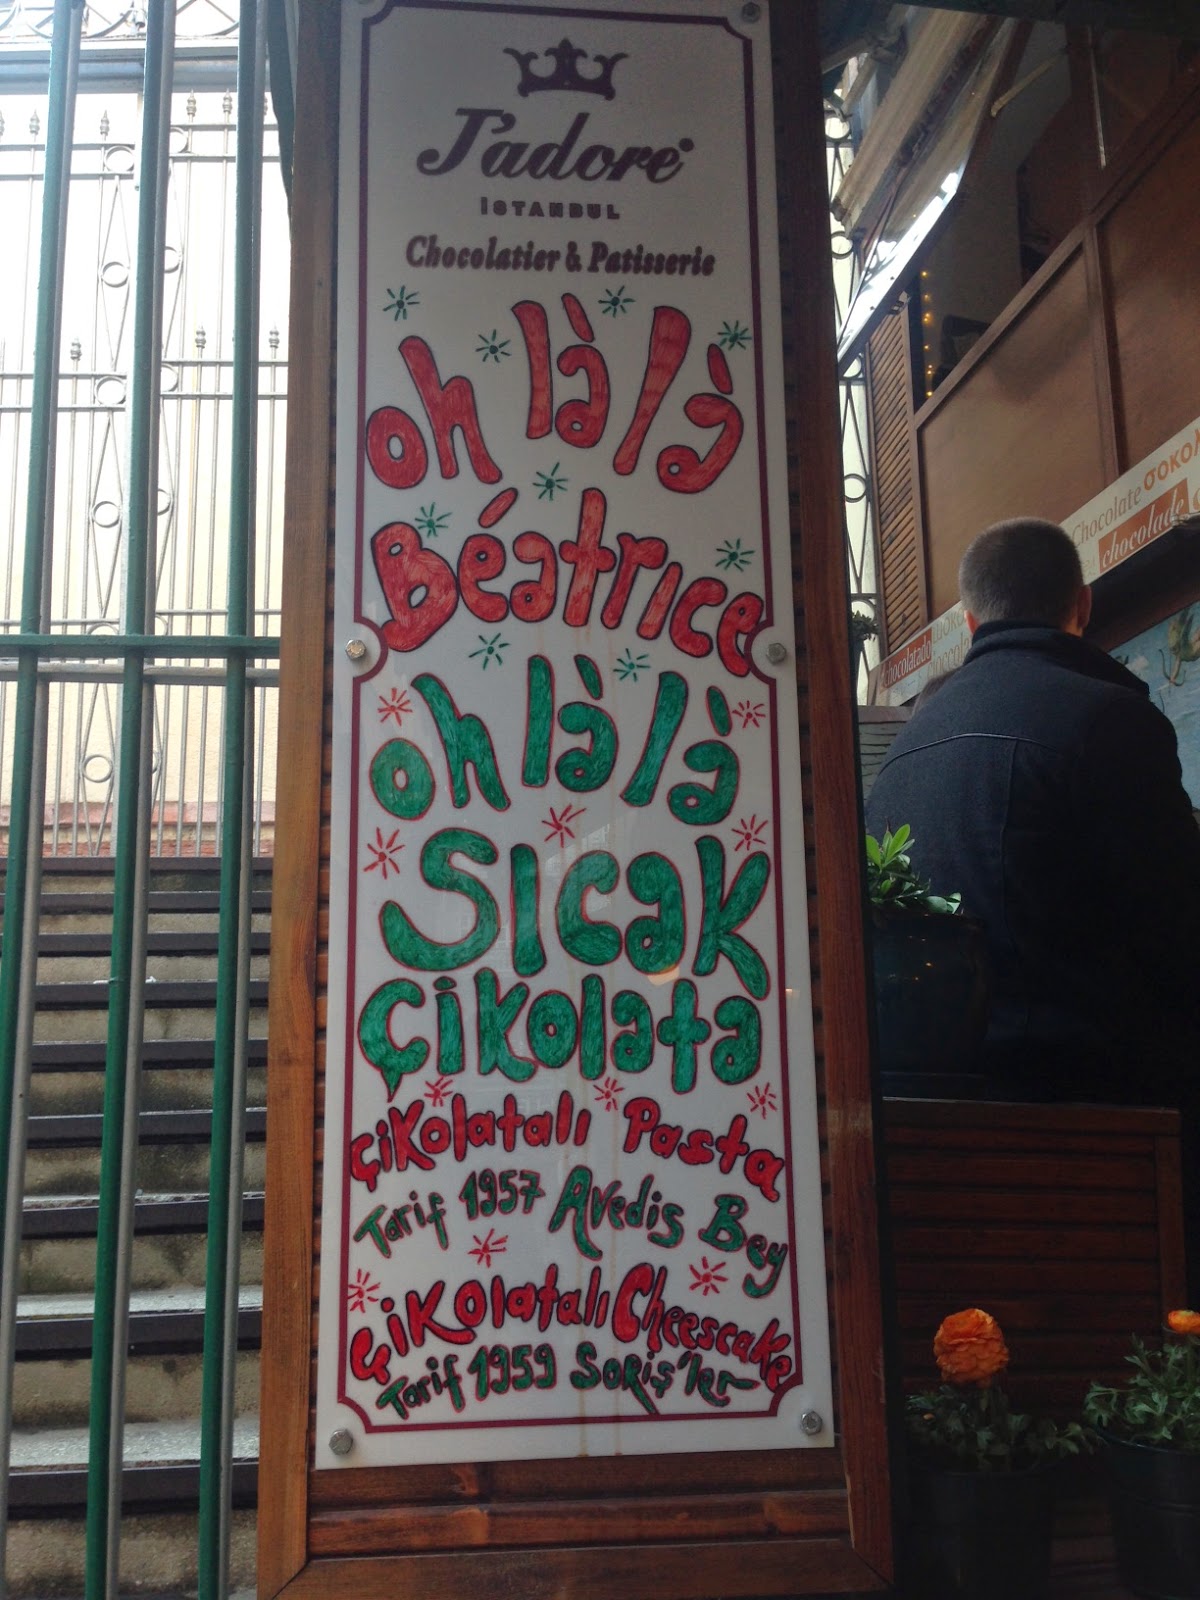 J'adore
İSTANBUL
Chocolatier & Patisserie
oh là là
Béatrice
oh là là
Sıcak
Çikolata
Çikolatalı Pasta
Tarif 1957 Avedis Bey
Çikolatalı Cheesecake
Tarif 1959 Soriş'ler
Chocolate
chocolade
chocolatado